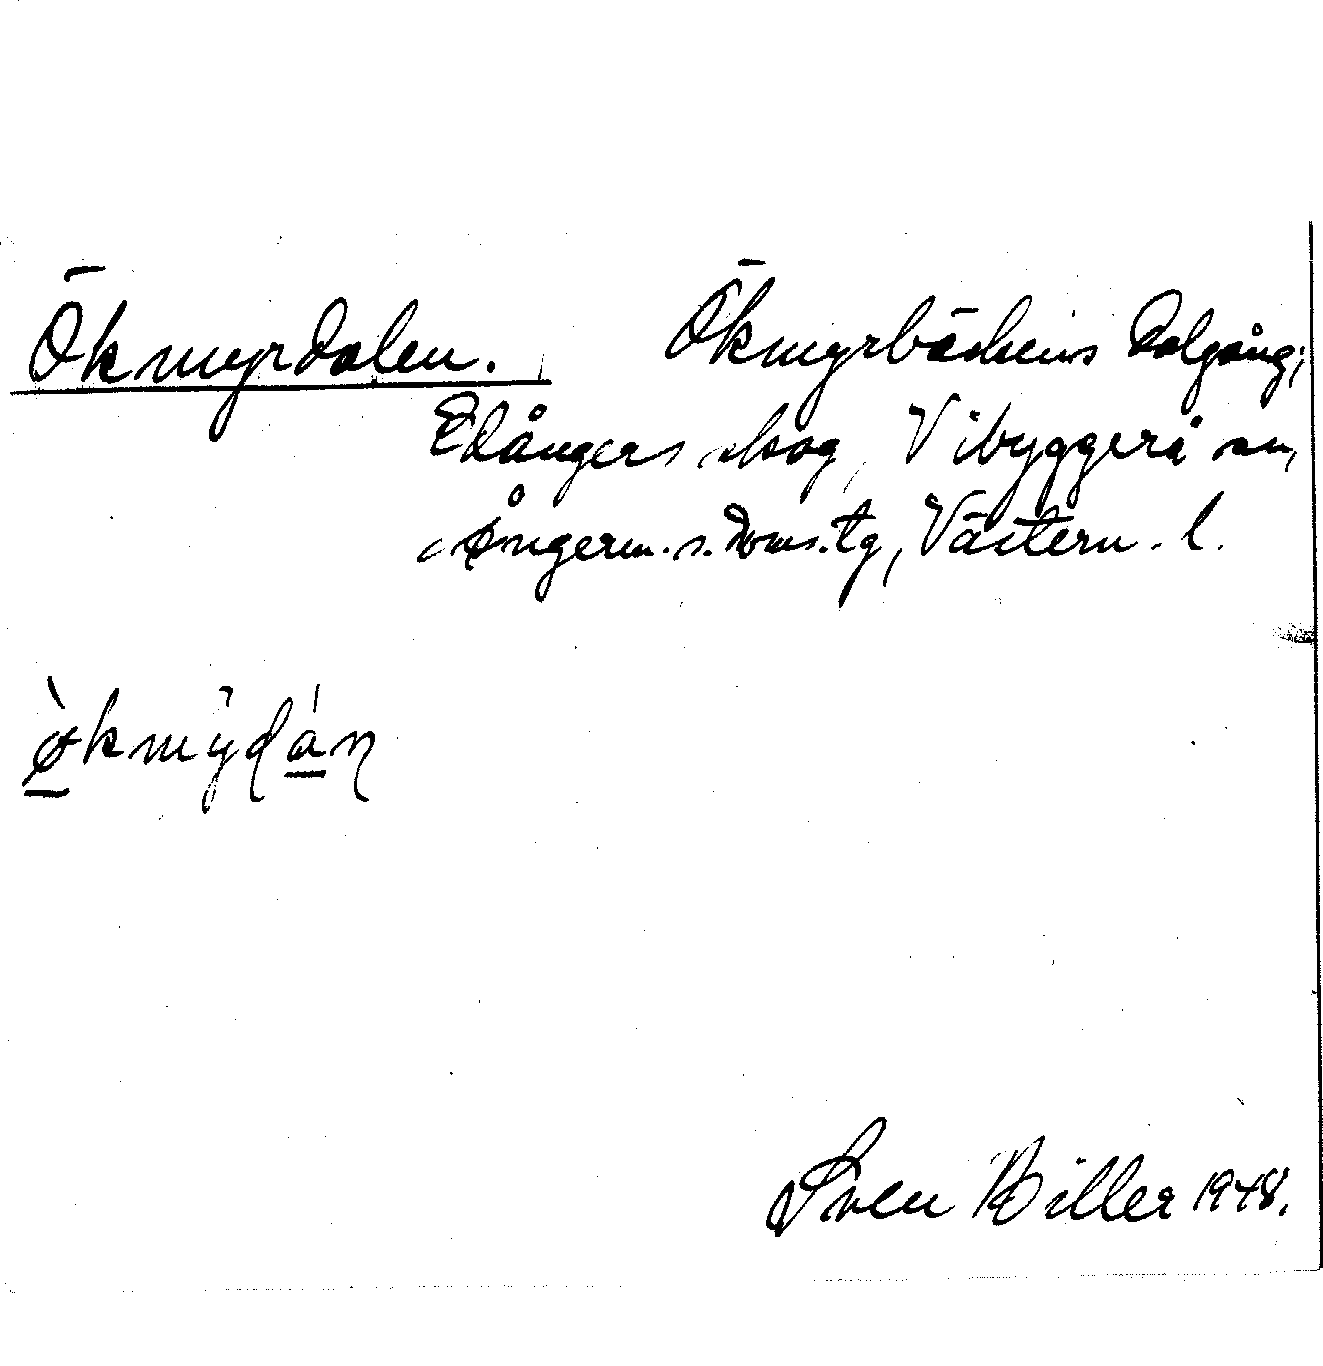 Ökmyrdalen. Ökmyrbäckens dalgång;
Edångers skog, Vibyggerå sn,
Ångerm. s. doms. tg, Västern. l.
økmy̆dán
Sven Biller 1948.